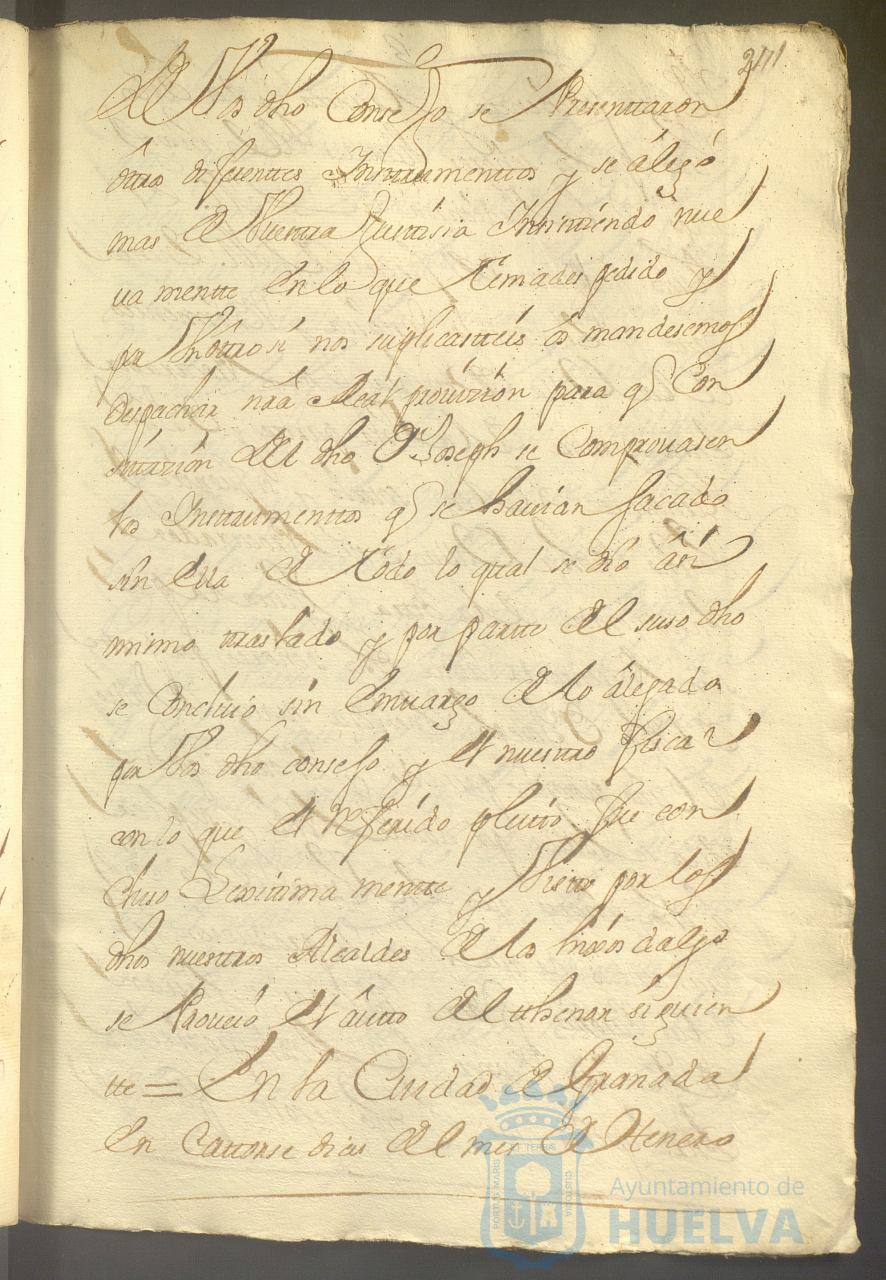 241
de Vos dho Consejo se Presenttaron
ôtros diferenttes Insttrumenttos y se álegó
mas de Vuestra Justtisia Insistiendo nue
va mentte En lo que Teniades pedido y
por Vn ôttro sí nos suplicasttéis ôs mandasemos
despachar nrâ Real provizión para q̃ Con
sittazión del dho Dn Joseph se Comprovasen
los Insttrumenttos q̃ se havían sacado
sin Ella de Todo lo qual se dió âsi
mimo traslado y por partte del suso dho
se Concluió sin Emvargo de lo álegado
por Vos dho consejo y el nuestro fiscal
con lo que el Referído pleito fue con
cluso Lexíttima mentte y Visto por los
dhos nuestros Alcaldes de los hixos dalgo
se Proveió el âutto del thenor síguien
tte = En la Ciudad de Granada
En Cattorse dias del mes de Henero
PORTUS MARIS ET TERRAE CUSTODIA
Ayuntamiento de
HUELVA